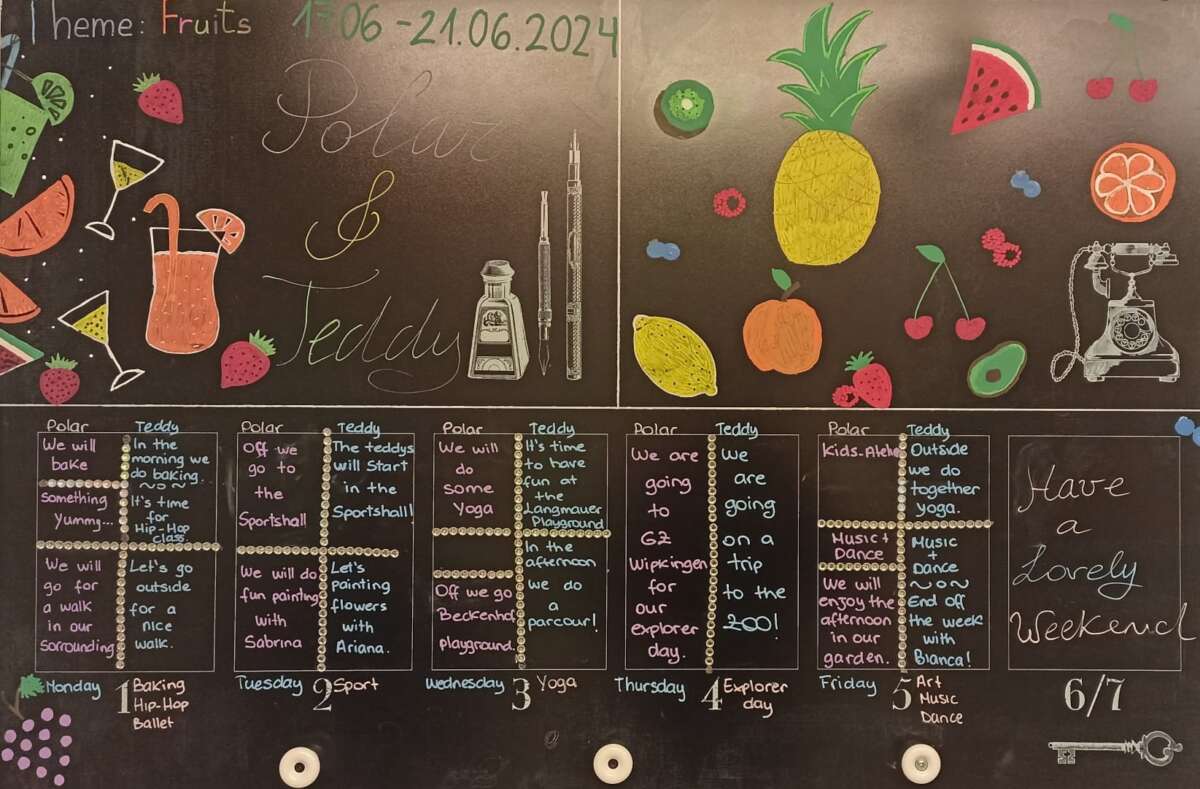 Theme: Fruits
17.06 - 21.06.2024
Polar
&
Teddy
Polar
We will
bake
something
Yummy...
We will
go for
a walk
in our
Sorrounding
Teddy
In the
morning we
do baking.
~o~
It's time
for
Hip-Hop
class.
Let's go
outside
for a
nice
walk.
Monday 1 Baking
Hip-Hop
Ballet
Polar
Off we
go to
the
Sportshall
We will do
fun painting
with
Sabrina
Teddy
The teddys
will Start
in the
Sportshall!
Let's
painting
flowers
with
Ariana.
Tuesday 2 Sport
Polar
We will
do
some
Yoga
Off we go
Beckenhof
playground.
Teddy
It's time
to have
fun at
the
Langmauer
Playground
In the
afternoon
we do
a
parcour!
Wednesday 3 Yoga
Polar
We are
going
to
GZ
Wipkingen
for
our
explorer
day.
Teddy
We
are
going
on a
trip
to the
ZOO!
Thursday 4 Explorer
day
Polar
Music+
Dance
We will
enjoy the
afternoon
in our
garden.
Teddy
Outside
we do
together
yoga.
Music
+
Dance
~o~
End off
the week
with
Bianca!
Friday 5 Art
Music
Dance
Have
a
Lovely
Weekend
6/7